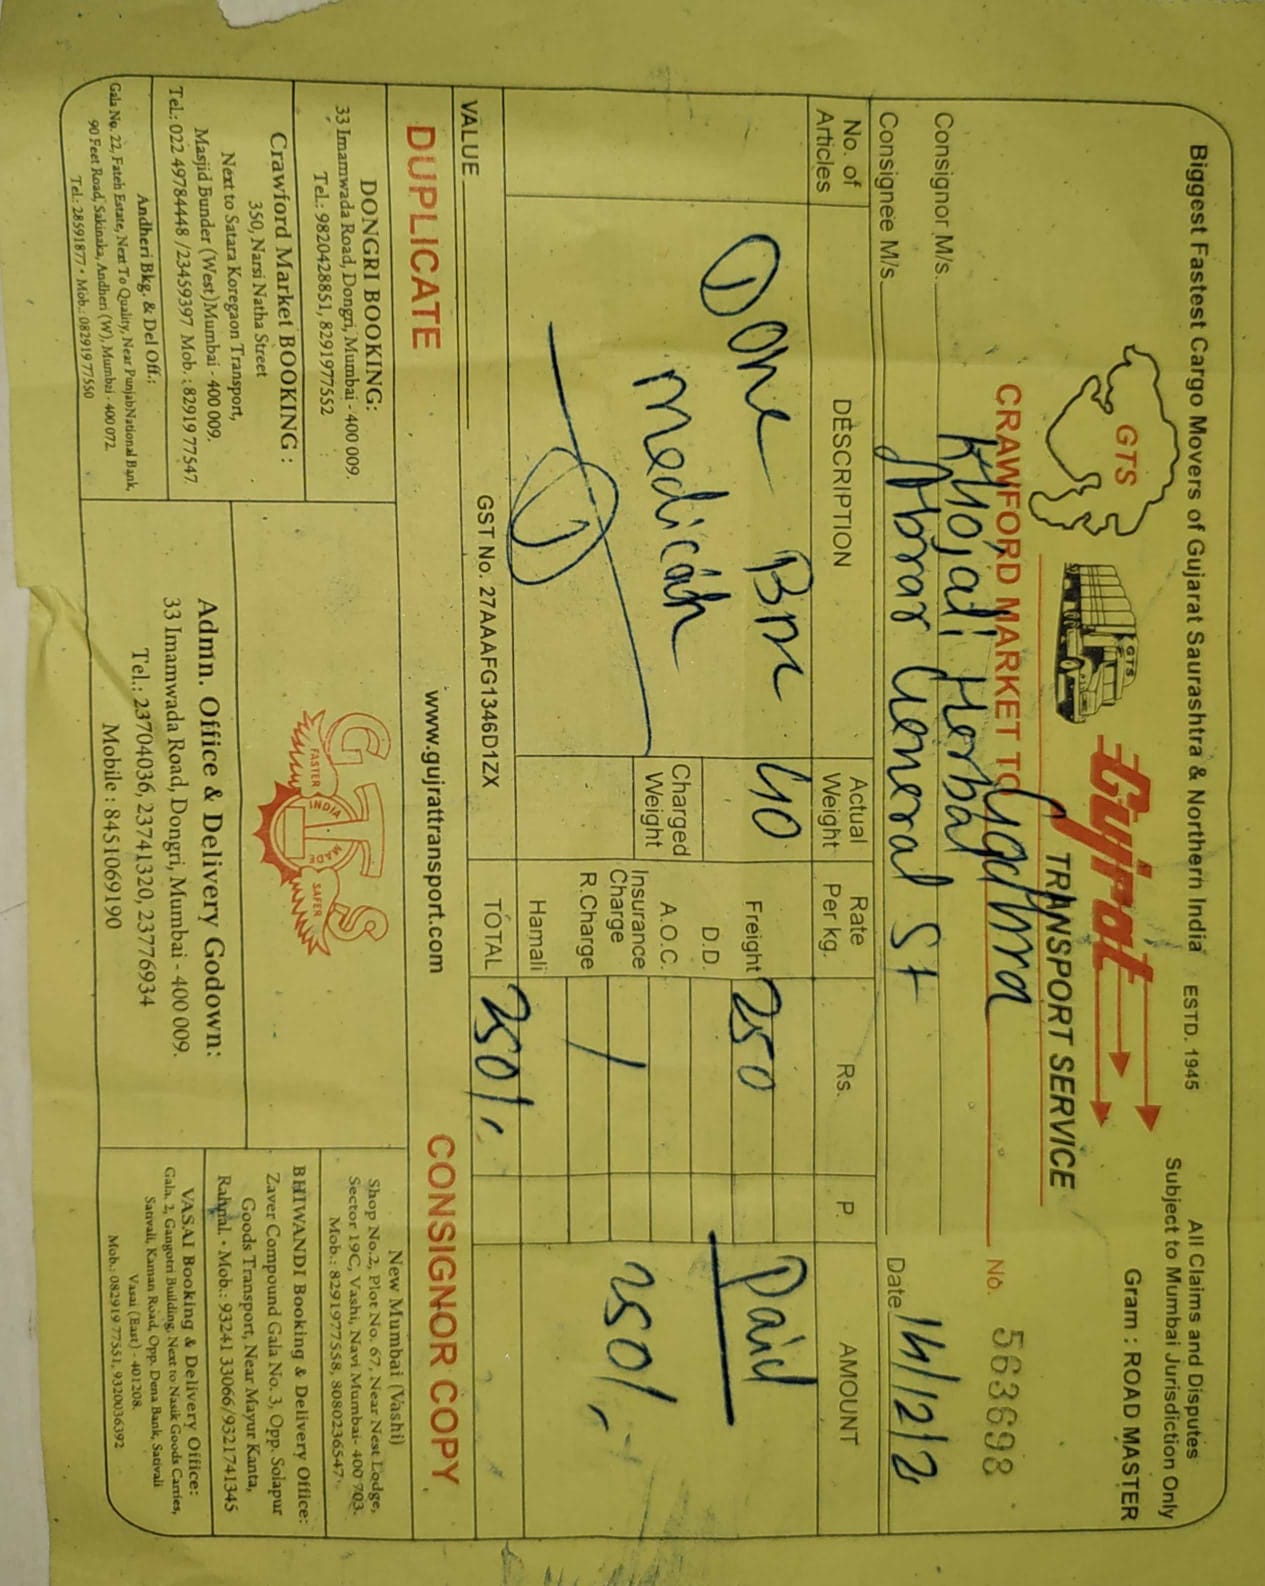 Biggest Fastest Cargo Movers of Gujarat Saurashtra & Northern India ESTD. 1945
All Claims and Disputes
Subject to Mumbai Jurisdiction Only
Gram : ROAD MASTER
GTS
GTS
Gujrat
TRANSPORT SERVICE
CRAWFORD MARKET TO
No. 563698
Consignor M/s. Khojati Herbal
Consignee M/s. Abrar General St
Date 14/12/2
No. of Articles
DESCRIPTION
Actual Weight
Rate Per kg.
Rs.
P.
AMOUNT
One
40
Freight 250
Paid
D.D.
Charged Weight
A.O.C.
Insurance Charge
250/-
R.Charge
Hamali
VALUE
GST No. 27AAAFG1346D1ZX
TOTAL 250/-
DUPLICATE
www.gujrattransport.com
CONSIGNOR COPY
DONGRI BOOKING:
33 Imamwada Road, Dongri, Mumbai - 400 009.
Tel.: 9820428851, 8291977552
Crawford Market BOOKING :
350, Narsi Natha Street
Next to Satara Koregaon Transport,
Masjid Bunder (West)Mumbai - 400 009.
Tel.: 022 49784448 /23459397 Mob. : 82919 77547
Andheri Bkg. & Del Off.:
Gala No. 22, Fateh Estate, Next To Quality, Near PunjabNational Bank,
90 Feet Road, Sakinaka, Andheri (W), Mumbai - 400 072.
Tel.: 28591877 • Mob.: 082919 77550
GTS
FASTER
INDIA
MADE
SAFER
Admn. Office & Delivery Godown:
33 Imamwada Road, Dongri, Mumbai - 400 009.
Tel.: 23704036, 23741320, 23776934
Mobile : 8451069190
New Mumbai (Vashi)
Shop No.2, Plot No. 67, Near Nest Lodge,
Sector 19C, Vashi, Navi Mumbai- 400 703.
Mob.: 8291977558, 8080236547
BHIWANDI Booking & Delivery Office:
Zaver Compound Gala No. 3, Opp. Solapur
Goods Transport, Near Mayur Kanta,
Rahnal. • Mob.: 93241 33066/9321741345
VASAI Booking & Delivery Office:
Gala. 2, Gangotri Building, Next to Nasik Goods Carries,
Sativali, Kaman Road, Opp. Dena Bank, Sativali
Vasai (East) - 401208.
Mob.: 082919 77551, 9320036392